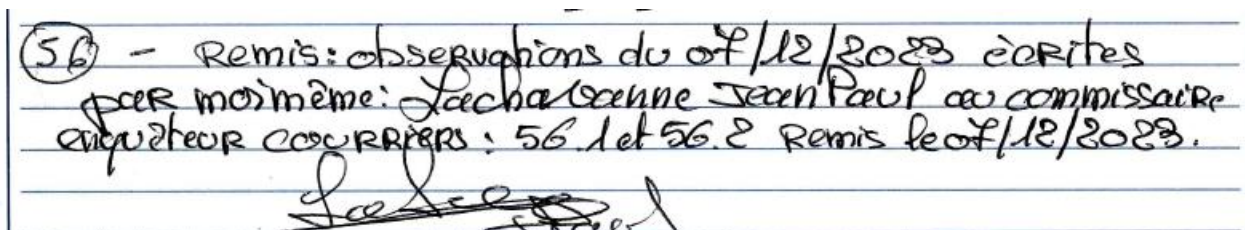 56 - Remis: observations du 07/12/2023 ècrites
par moi même: Lachavanne Jean Paul au commissaire
enquêteur coURRiers: 56.1 et 56.2 Remis le 07/12/2023.